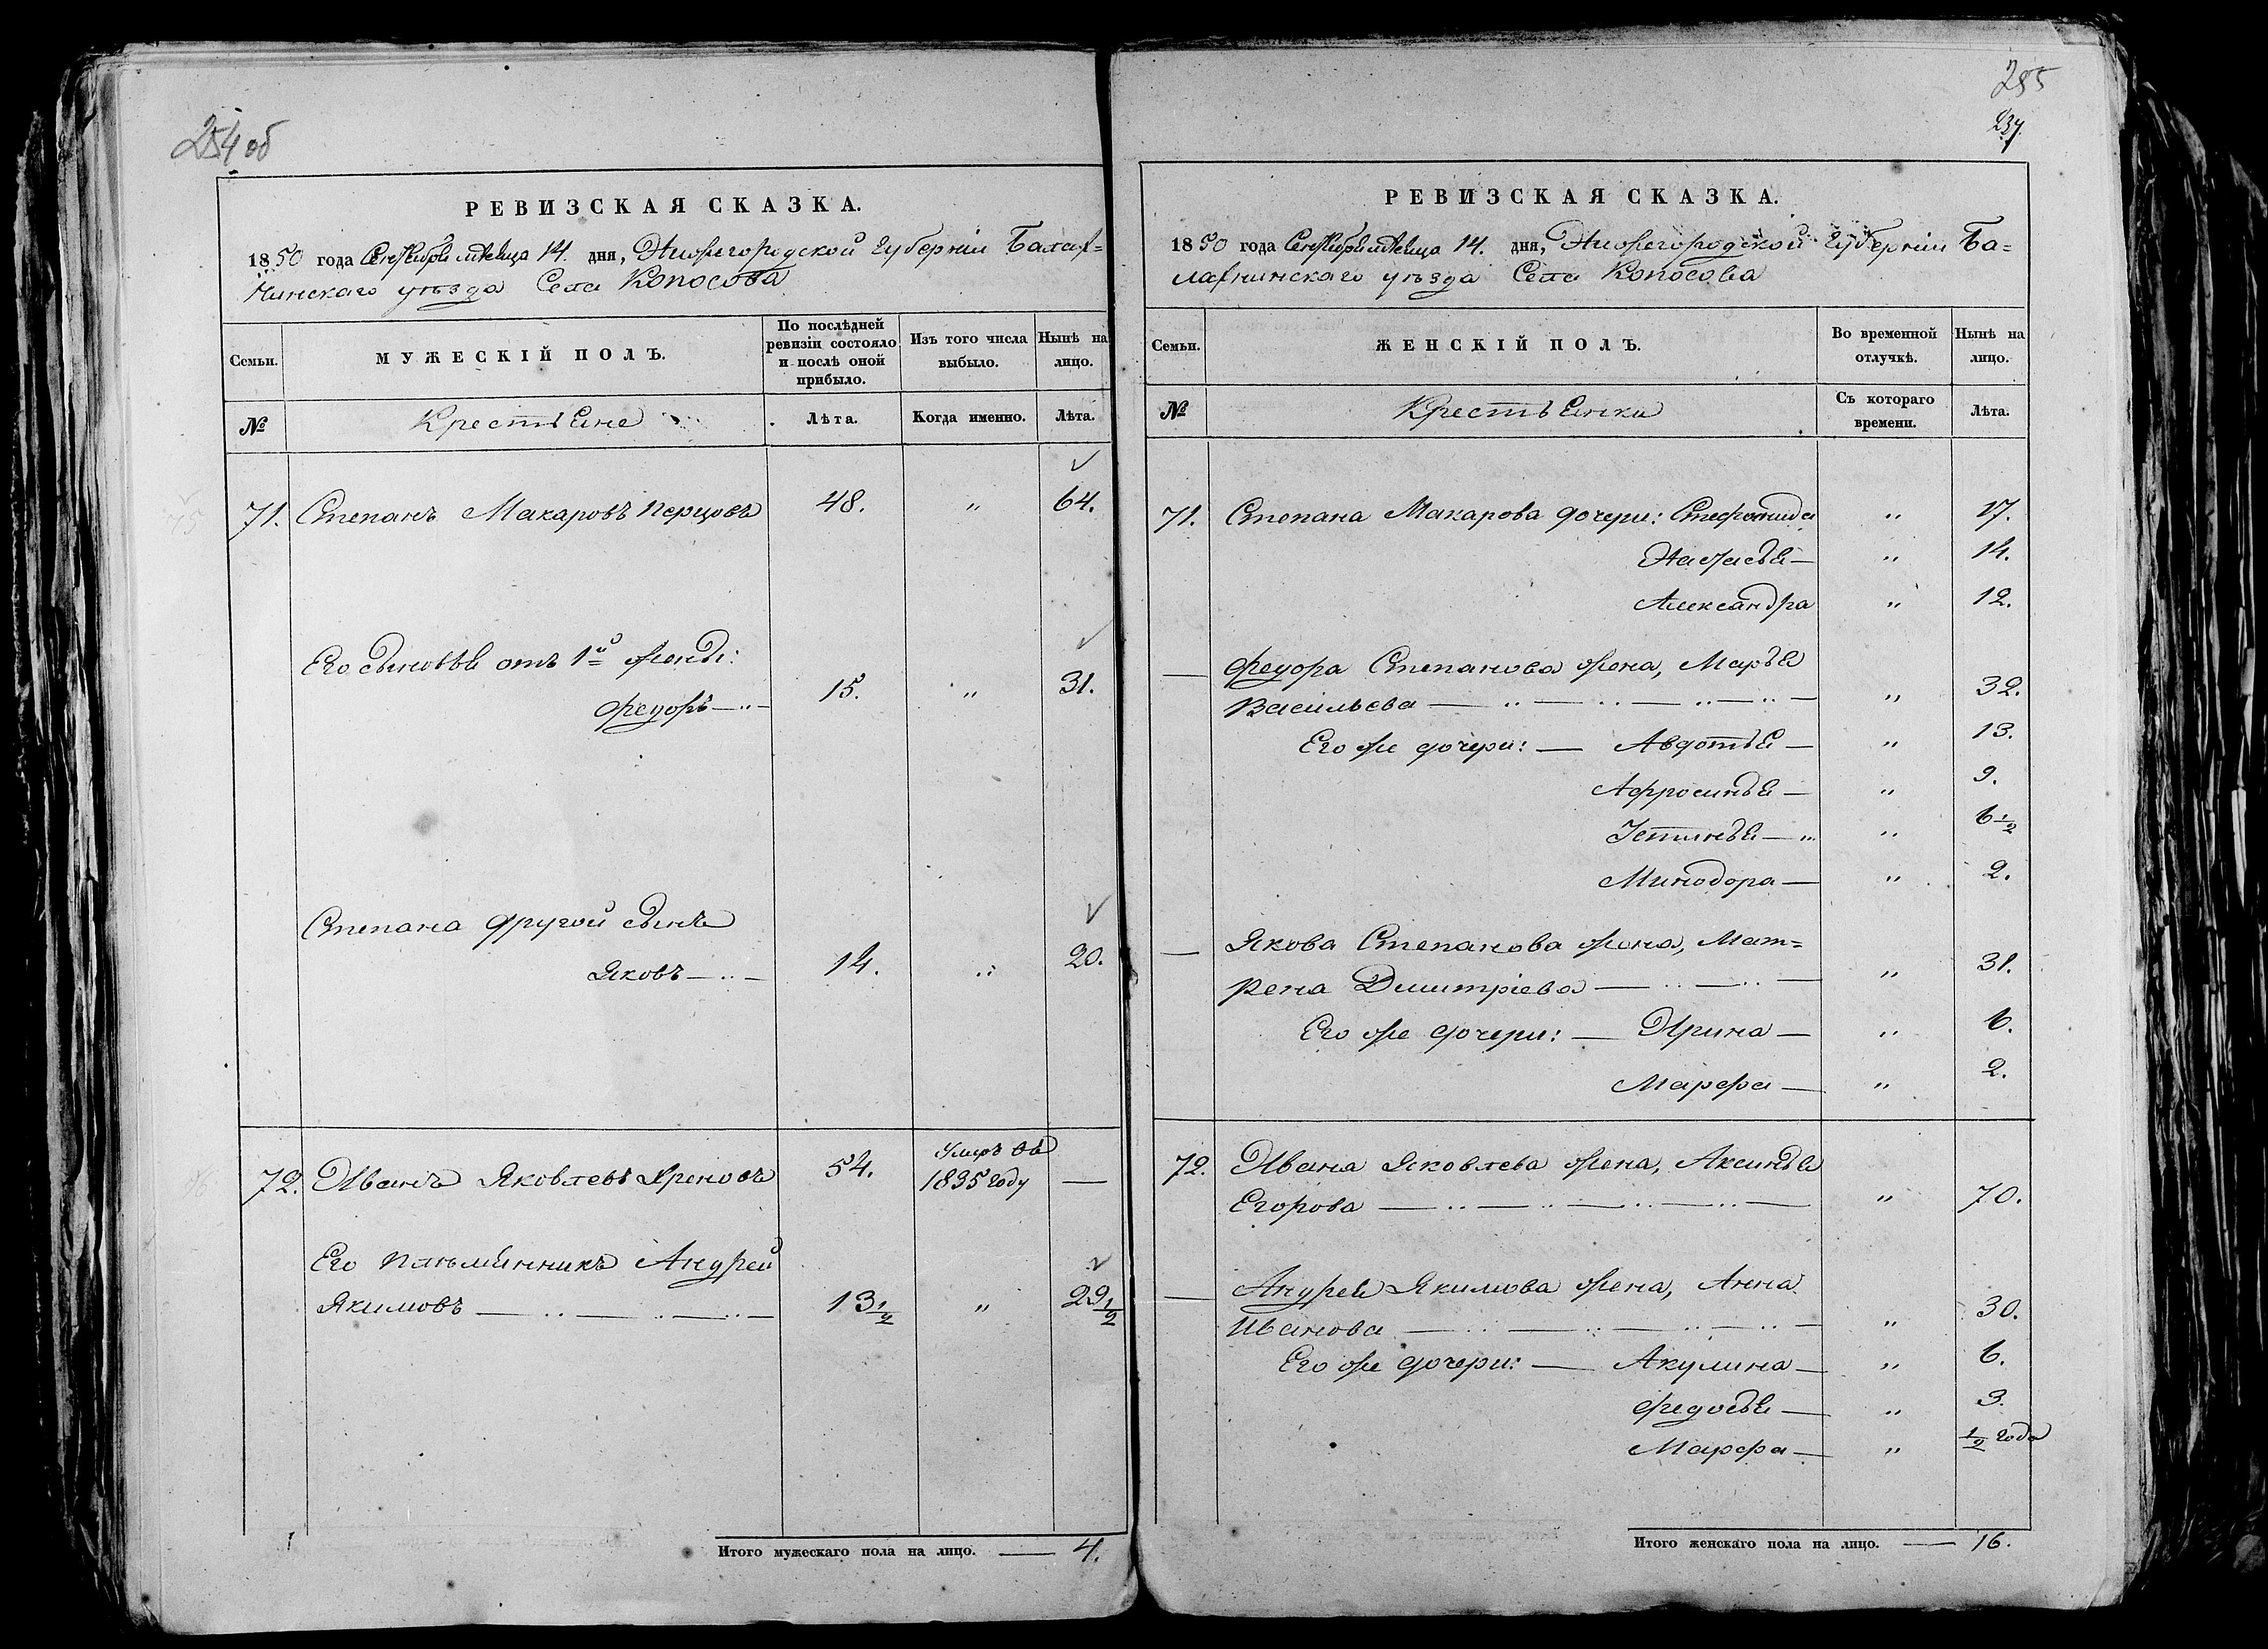 254 об
РЕВИЗСКАЯ СКАЗКА.
1850 года Сентября мѣсяца 14. дня, Нижегородской губерніи Балах=
нинскаго уѣзда Села Копосова
Семьи.
МУЖЕСКІЙ ПОЛЪ.
По послѣдней ревизіи состояло и послѣ оной прибыло.
Изъ того числа выбыло.
Нынѣ на лицо.
№
Крестьяне
Лѣта.
Когда именно.
Лѣта.
71. Степанъ Макаровъ Перцовъ 48. " 64.
Его сыновья отъ 1й жены:
Федоръ 15. " 31.
Степана другой сынъ
Яковъ 14. " 30.
72. Иванъ Яковлевъ Хреновъ 54. Умеръ въ 1835 году —
Его племянникъ Андрей
Якимовъ 13 1/2 " 29 1/2
Итого мужескаго пола на лицо. — 4.
285
237.
РЕВИЗСКАЯ СКАЗКА.
1850 года Сентября мѣсяца 14. дня, Нижегородской губерніи Ба=
лахнинскаго уѣзда Села Копосова
Семьи.
ЖЕНСКІЙ ПОЛЪ.
Во временной отлучкѣ.
Нынѣ на лицо.
№
Крестьянки
Съ котораго времени.
Лѣта.
71. Степана Макарова дочери: Степанида " 17.
Настасья — " 14.
Александра " 12.
— Федора Степанова жена, Марья
Васильева — " 32.
Его же дочери: — Авдотья — " 13.
Афросинья — " 9.
Устинья — " 6 1/2
Минодора — " 2.
— Якова Степанова жена, Мат=
рена Дмитріева — " 31.
Его же дочери: — Ирина — " 6.
Марфа — " 2.
72. Ивана Яковлева жена, Аксинья
Егорова — " 70.
— Андрея Якимова жена, Анна
Иванова — " 30.
Его же дочери: — Акулина — " 6.
Федосья — " 3.
Марфа — " 1/2 года
Итого женскаго пола на лицо. — 16.